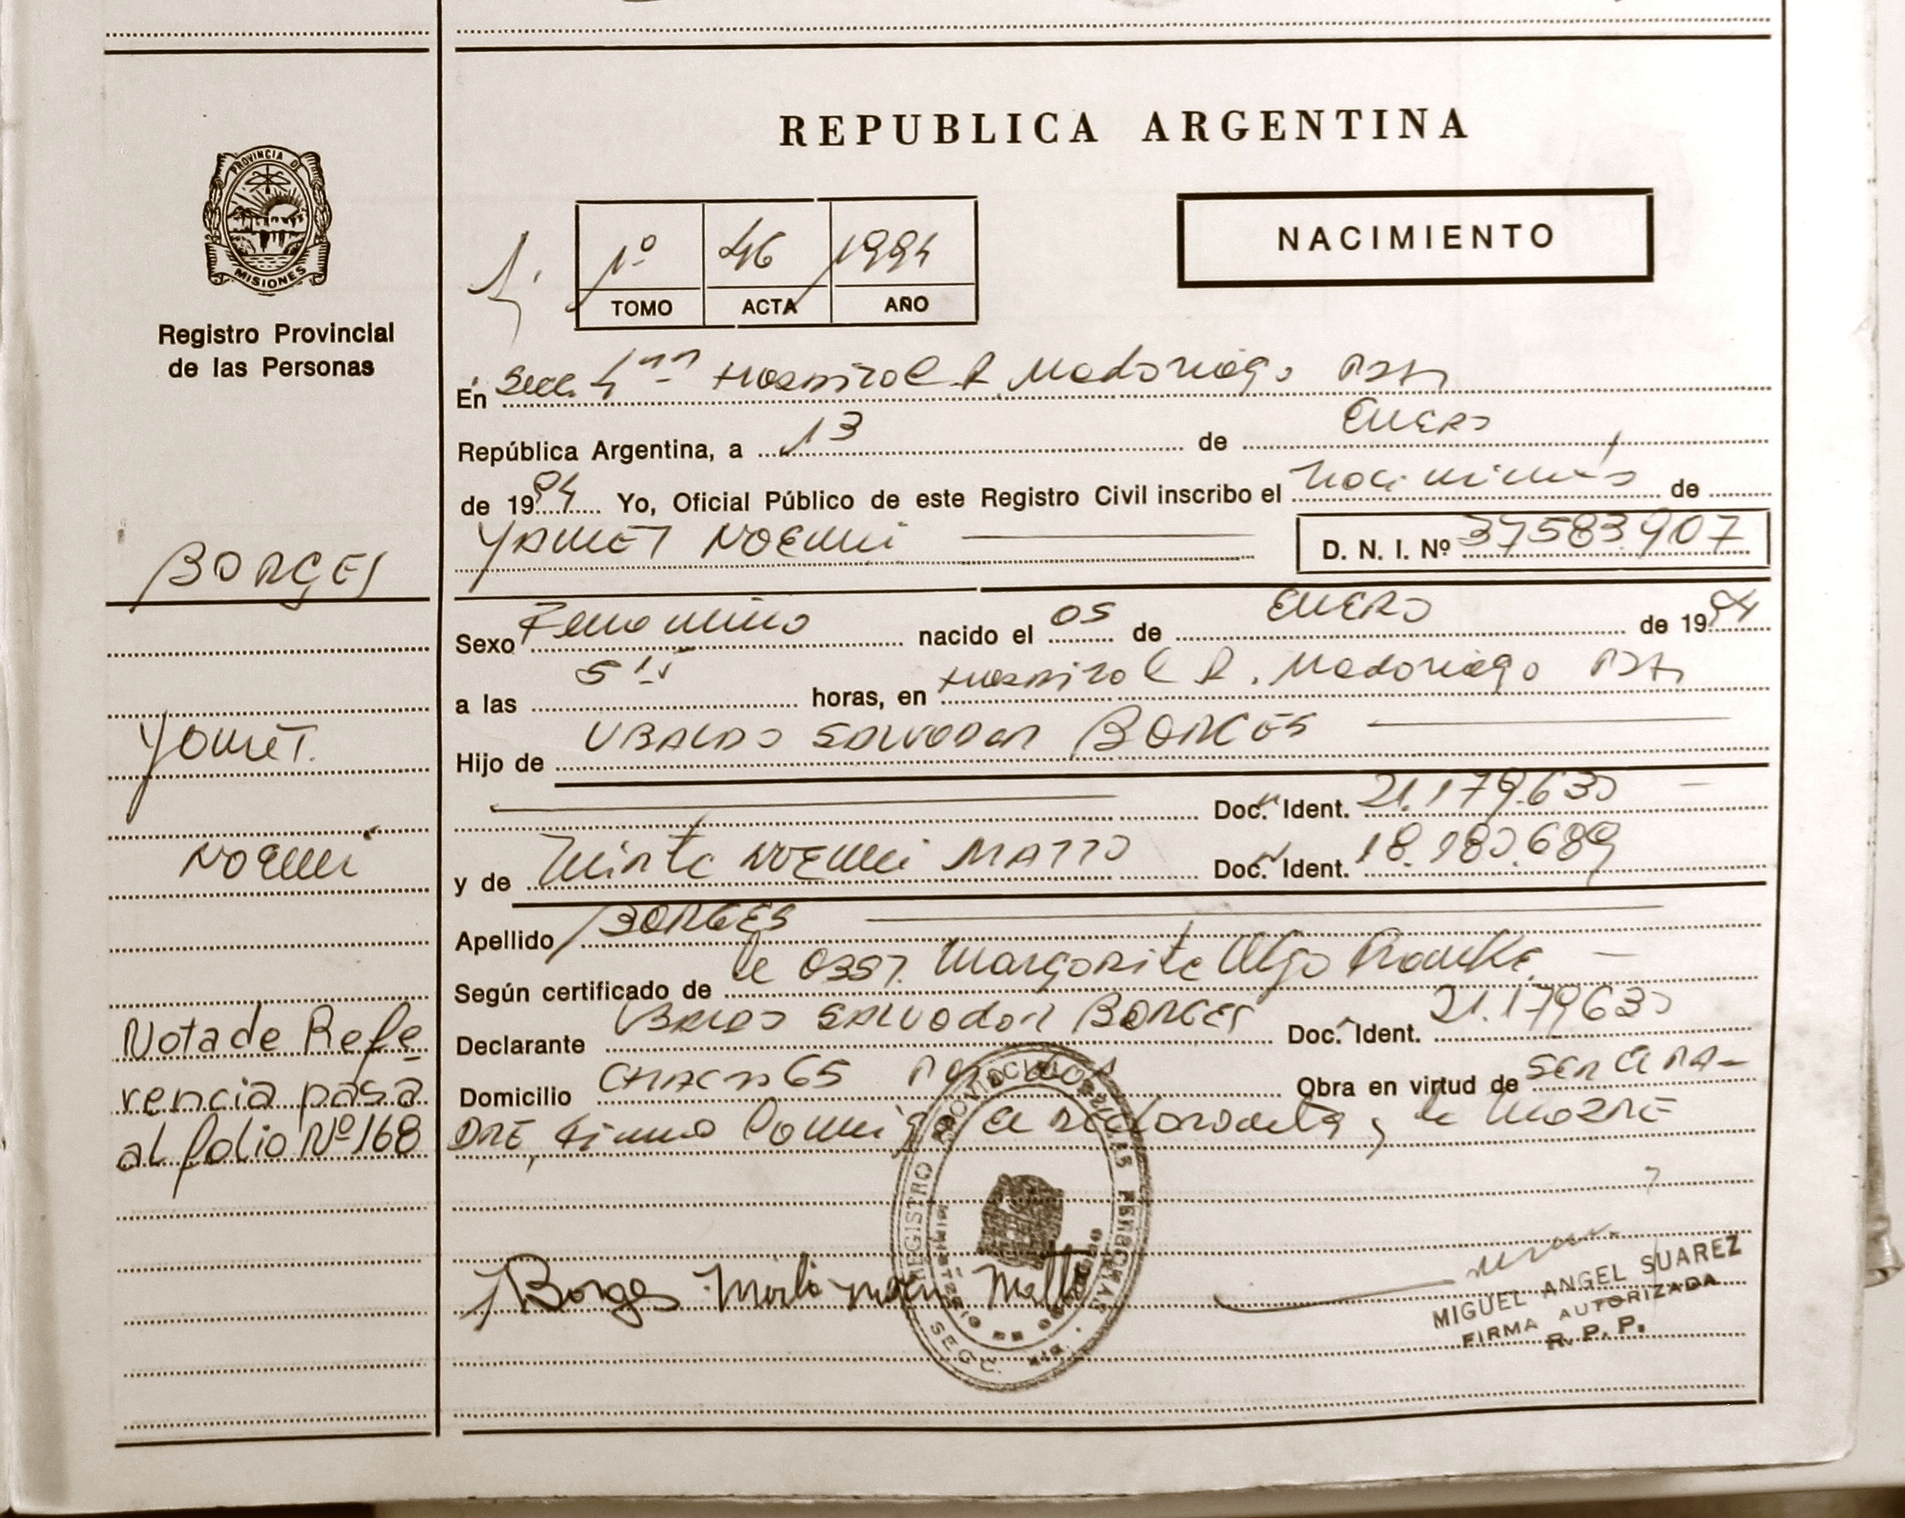 PROVINCIA D
MISIONES
Registro Provincial
de las Personas
BORGES
YAMET.
NOEMI
Nota de Refe
rencia pasa
al folio Nº 168
REPUBLICA ARGENTINA
1º 46 1994
TOMO ACTA AÑO
NACIMIENTO
En Secc. Hospital R. Madariaga Pdas
República Argentina, a 13 de ENERO
de 1994 Yo, Oficial Público de este Registro Civil inscribo el nacimiento de
YAMET NOEMI D. N. I. Nº 37583907
Sexo Femenino nacido el 05 de ENERO de 1994
a las 5 horas, en Hospital R. Madariaga Pdas
Hijo de UBALDO SALVADOR BORGES
Doc. Ident. 21.179.630
y de NOEMI MATTO Doc. Ident. 18.180.689
Apellido BORGES
Según certificado de la Obst. Margarita Olga
Declarante UBALDO SALVADOR BORGES Doc. Ident. 21.179630
Domicilio CHACRA 65 Obra en virtud de SER EL PA-
DRE, firma el declarante y la MADRE
Borges
MIGUEL ANGEL SUAREZ
FIRMA AUTORIZADA
R. P. P.
REGISTRO PROVINCIAL DE LAS PERSONAS